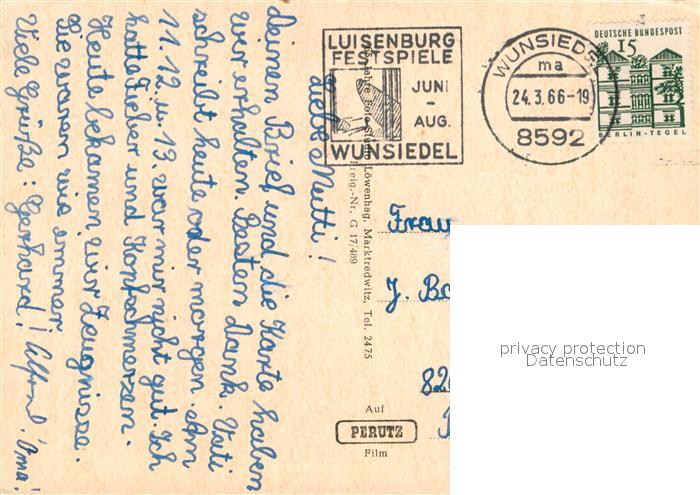 Liebe Mutti!
Deinen Brief und die Karte haben
wir erhalten. Besten Dank. Vati
schreibt heute oder morgen. Am
11. 12. u. 13. war mir nicht gut. Ich
hatte Fieber und Kopfschmerzen.
Heute bekamen wir Zeugnisse.
Sie waren wie immer.
Viele Grüße: Gerhard! Alfred! Oma!
LUISENBURG
FESTSPIELE
JUNI
-
AUG.
WUNSIEDEL
WUNSIEDEL
ma
24.3.66-19
8592
DEUTSCHE BUNDESPOST
15
BERLIN-TEGEL
Löwenhag, Marktredwitz, Tel. 2475
Freig.-Nr. G 17/489
Frau
J. Ba
82
Auf
PERUTZ
Film
privacy protection
Datenschutz